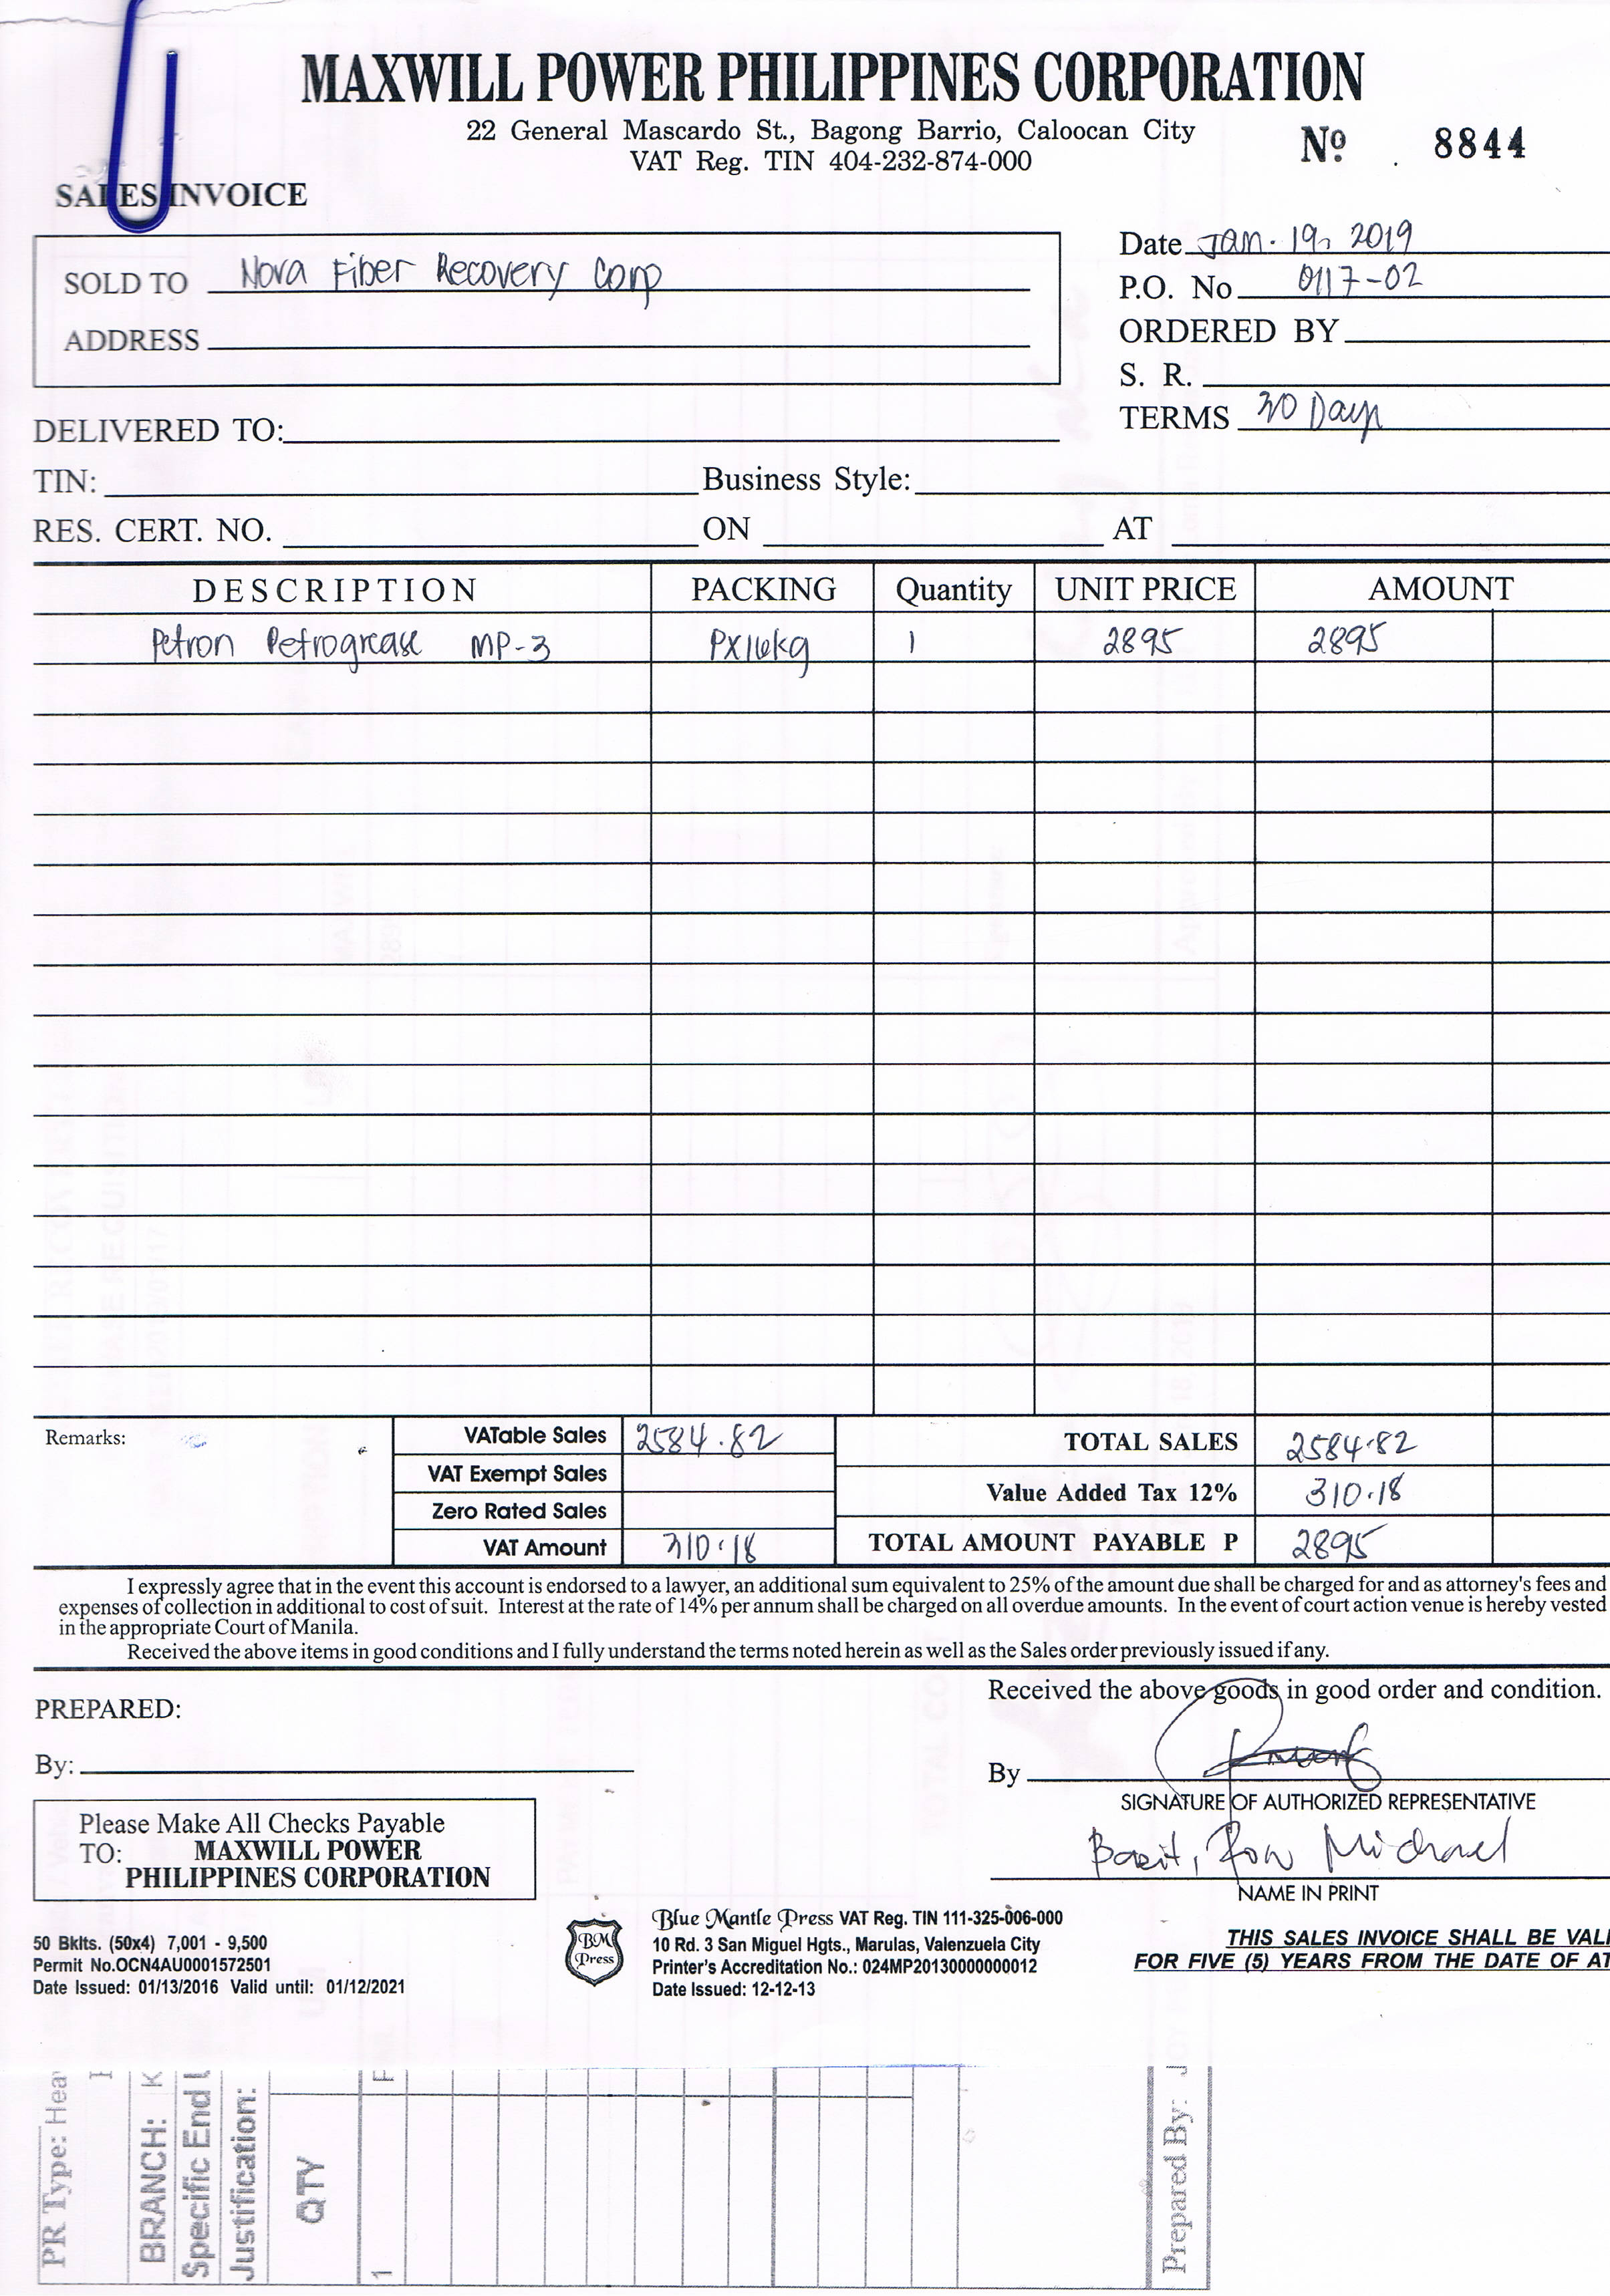 MAXWILL POWER PHILIPPINES CORPORATION
22 General Mascardo St., Bagong Barrio, Caloocan City
VAT Reg. TIN 404-232-874-000
Nº. 8844
SALES INVOICE
SOLD TO Nova Fiber Recovery Corp
ADDRESS
Date Jan. 19, 2019
P.O. No 0117-02
ORDERED BY
S. R.
TERMS 30 Days
DELIVERED TO:
TIN: Business Style:
RES. CERT. NO. ON AT
DESCRIPTION PACKING Quantity UNIT PRICE AMOUNT
Petron Petrogrease MP-3 Px16kg 1 2895 2895
Remarks:
VATable Sales 2584.82
VAT Exempt Sales
Zero Rated Sales
VAT Amount 310.18
TOTAL SALES 2584.82
Value Added Tax 12% 310.18
TOTAL AMOUNT PAYABLE P 2895
I expressly agree that in the event this account is endorsed to a lawyer, an additional sum equivalent to 25% of the amount due shall be charged for and as attorney's fees and
expenses of collection in additional to cost of suit. Interest at the rate of 14% per annum shall be charged on all overdue amounts. In the event of court action venue is hereby vested
in the appropriate Court of Manila.
Received the above items in good conditions and I fully understand the terms noted herein as well as the Sales order previously issued if any.
PREPARED:
By:
Received the above goods in good order and condition.
By
SIGNATURE OF AUTHORIZED REPRESENTATIVE
Michael
NAME IN PRINT
Please Make All Checks Payable
TO: MAXWILL POWER
PHILIPPINES CORPORATION
50 Bklts. (50x4) 7,001 - 9,500
Permit No.OCN4AU0001572501
Date Issued: 01/13/2016 Valid until: 01/12/2021
BM
Press
Blue Mantle Press VAT Reg. TIN 111-325-006-000
10 Rd. 3 San Miguel Hgts., Marulas, Valenzuela City
Printer's Accreditation No.: 024MP20130000000012
Date Issued: 12-12-13
THIS SALES INVOICE SHALL BE VALI
FOR FIVE (5) YEARS FROM THE DATE OF AT
PR Type: Hea
BRANCH: K
Specific End
Justification:
QTY
1
Prepared By: J